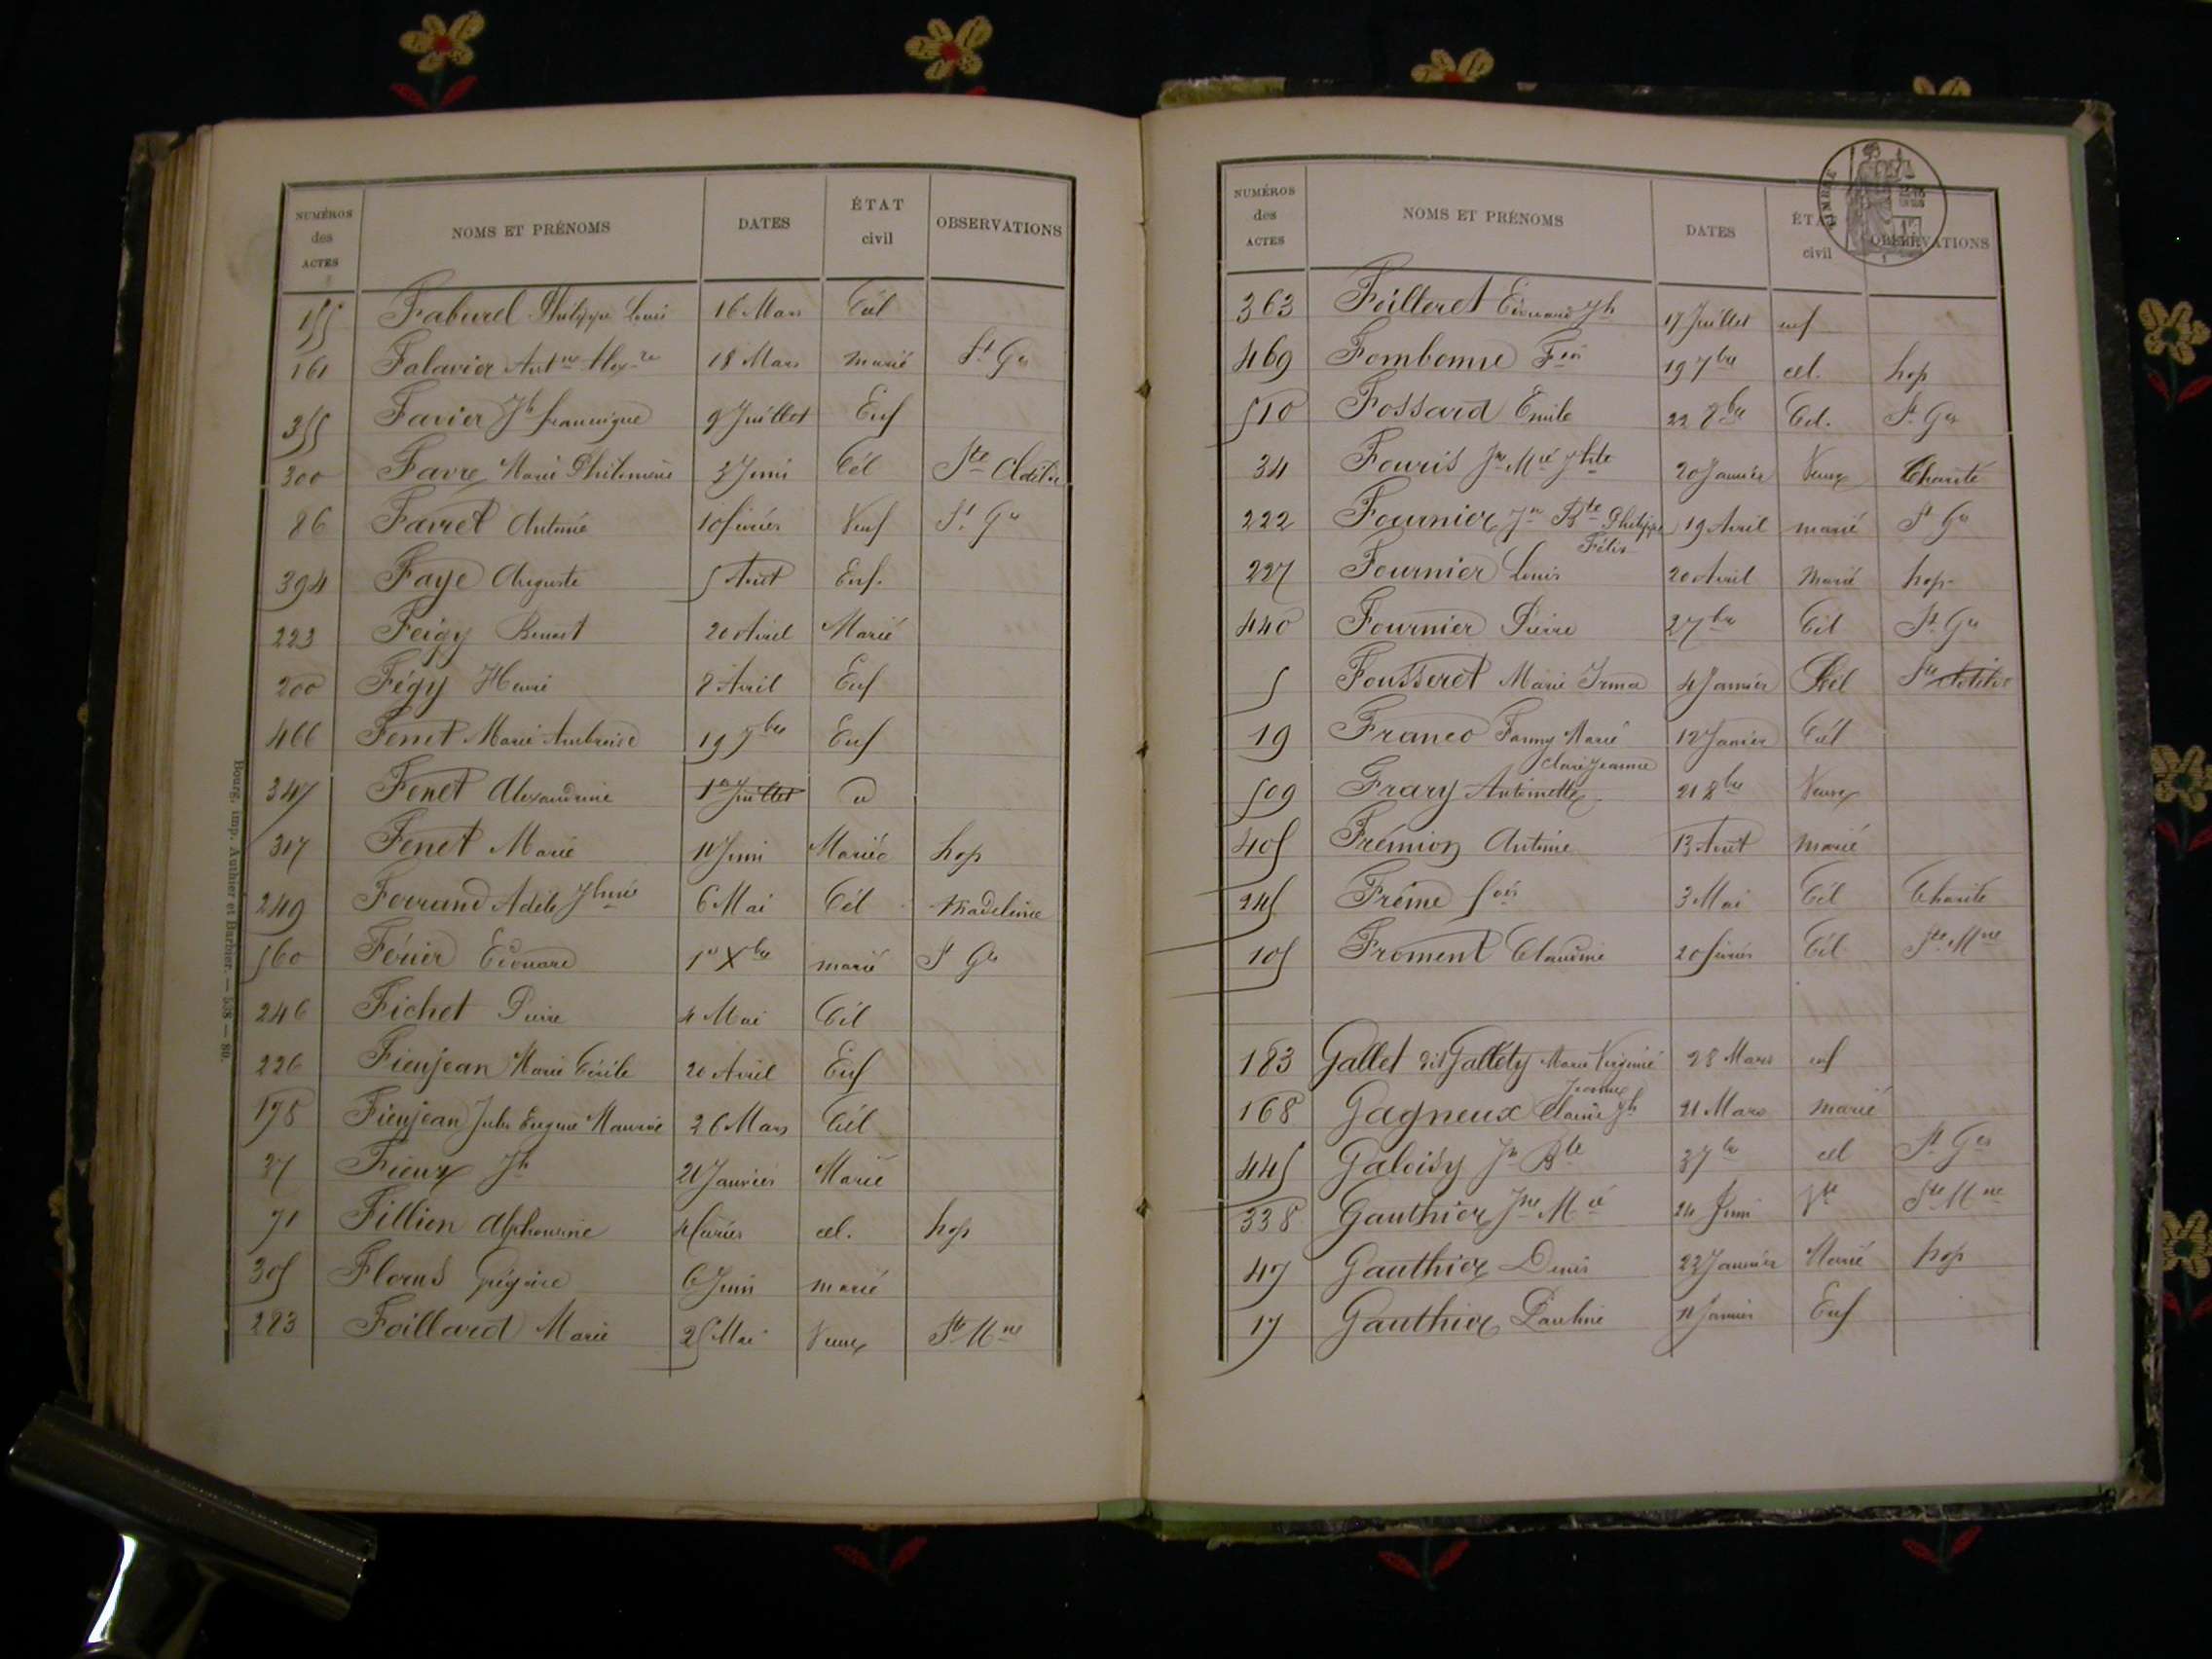 NUMÉROS des ACTES NOMS ET PRÉNOMS DATES ÉTAT civil OBSERVATIONS
155 Faburel Philippe Louis 16 Mars Cél
161 Falavier Antne Alexre 18 Mars marié St Gs
355 Favier Jh 9 Juillet Enf
300 Favre Marie Philomène 3 Juin Cél Ste Clotilde
86 Favret Antoine 10 février Veuf St Gs
394 Faye Auguste 5 Août Enf.
223 Feigy Benoit 20 Avril Marié
200 Fégy Henri 8 Avril Enf
466 Fenet Marie Ambroise 19 7bre Enf
347 Fenet Alexandrine 1er Juillet d
317 Fenet Marie 11 Juin Mariée hop
249 Ferrand Adèle Jhine 6 Mai Cél Madeleine
560 Février Edouard 1er Xbre marié St Gs
246 Fichet Pierre 4 Mai Cél
226 Fieujean Marie Cécile 20 Avril Enf
178 Fieujean Jules Eugène Maurice 26 Mars Cél
37 Fieux Jh 21 Janvier Marié
71 Fillion Alphonsine 4 février cel. hop
305 Florus Grégoire 6 Juin marié
283 Foillard Marie 25 Mai Veuve Ste Mne
Bourg, imp. Authier et Barbier. — 538 — 80.
NUMÉROS des ACTES NOMS ET PRÉNOMS DATES ÉTAT civil OBSERVATIONS
TIMBRE
363 Foilleret Edouard Jh 17 Juillet enf
469 Fombonne Fois 19 7bre cel. hop
510 Fossard Emile 22 8bre Cel. St Gs
34 Fouris Jn Mie 20 Janvier Veuve Charité
222 Fournier Jn Bte Philippe 19 Avril marié St Gs
Félix
227 Fournier Louis 20 Avril Marié hop
440 Fournier Pierre 2 7bre Cél St Gs
5 Fousseret Marie Irma 4 Janvier Cél Ste Clotilde
19 Franco Fanny Marie 12 Janvier Cél
Claire Jeanne
509 Frary Antoinette 21 8bre Veuve
405 Frémion Antoine 13 Août marié
245 Frême fois 3 Mai Cél Charité
105 Froment Claudine 20 février Cél Ste Mne
183 Gallet dit Gallety Marie Virginie 28 Mars enf
Jeanne
168 Gagneux Claude Jh 21 Mars marié
445 Galoisy Jn Bte 3 7bre cel St Gs
338 Gauthier Jne Mie 24 Juin Vve Ste Mne
47 Gauthier Denis 23 Janvier Marié hop
17 Gauthier Pauline 11 Janvier Enf